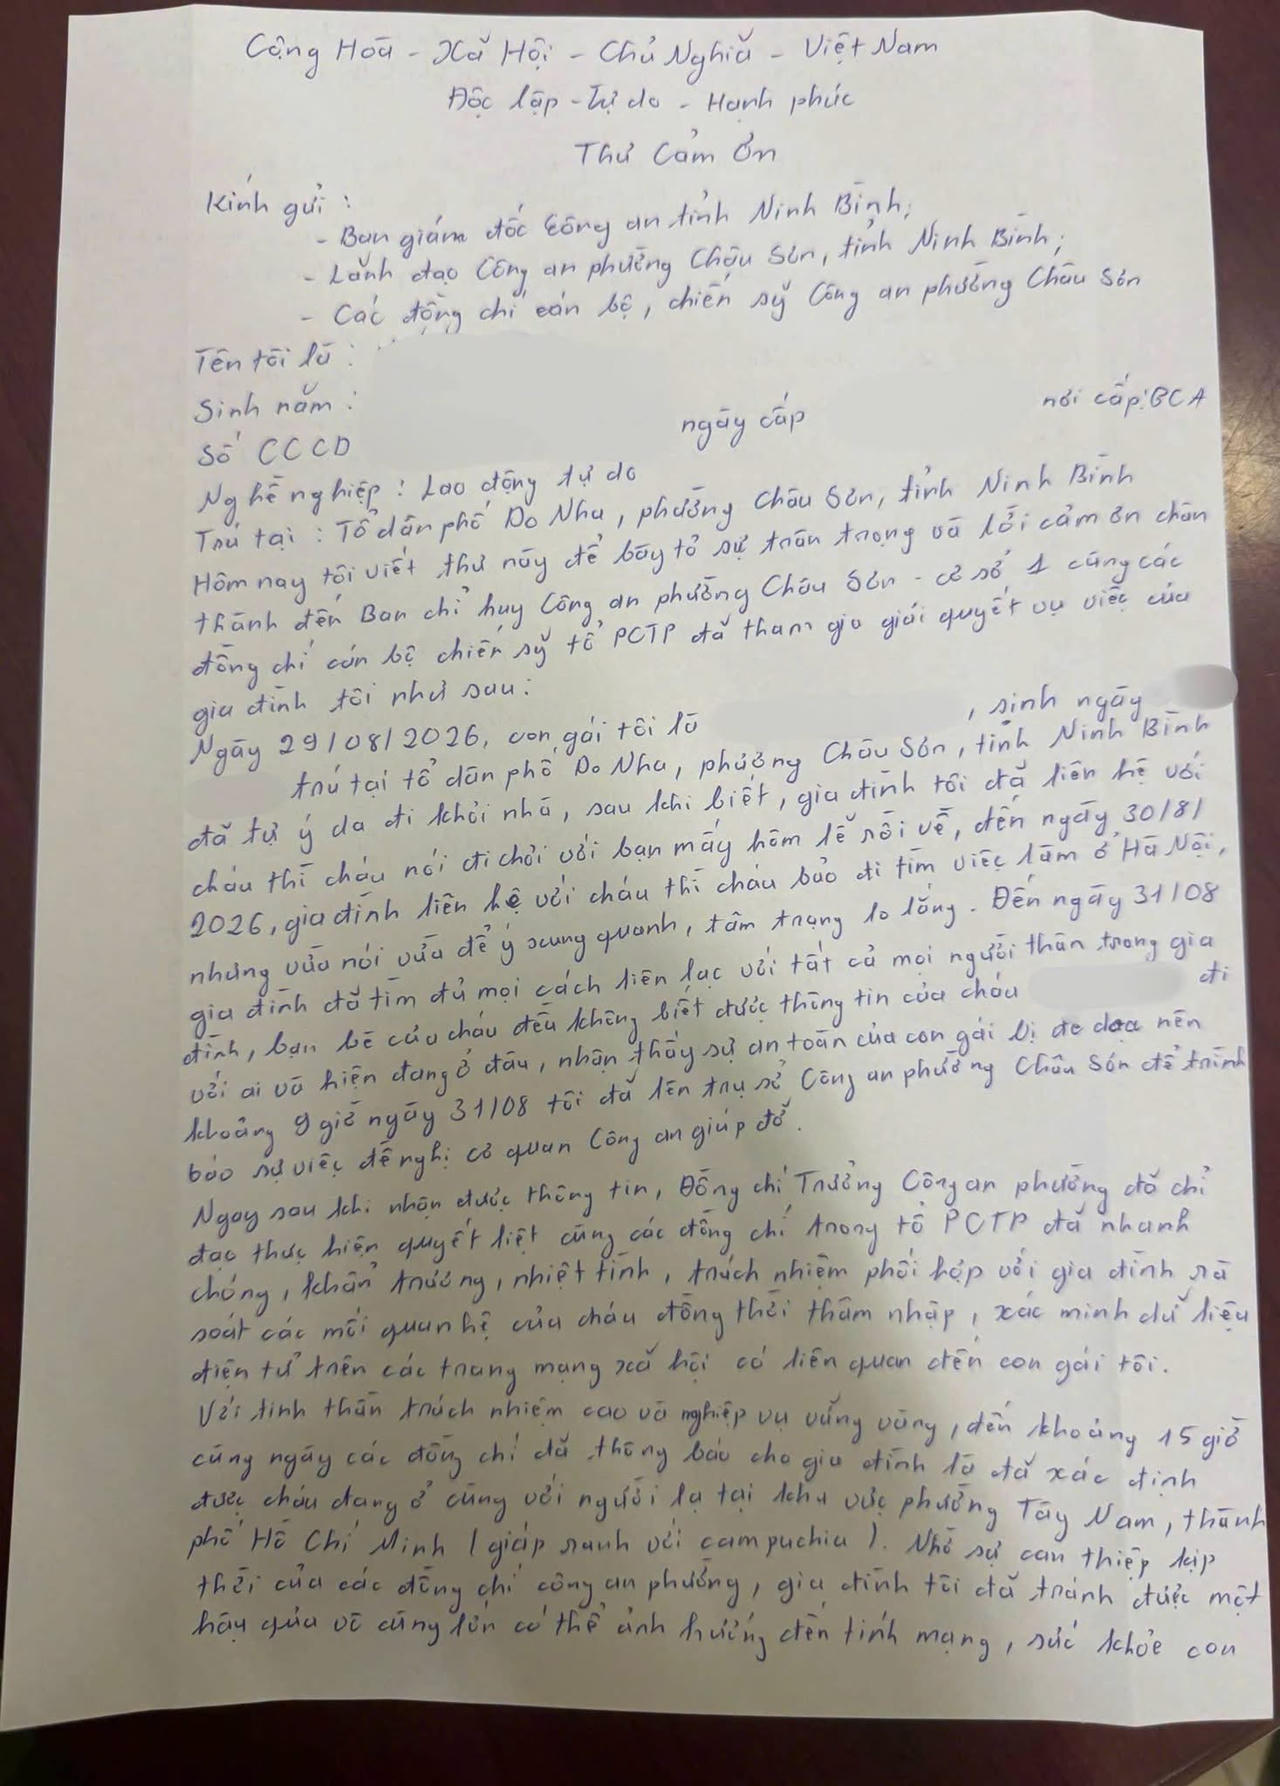 Cộng Hoà - Xã Hội - Chủ Nghĩa - Việt Nam
Độc lập - Tự do - Hạnh phúc
Thư Cảm Ơn
Kính gửi :
- Ban giám đốc Công an tỉnh Ninh Bình;
- Lãnh đạo Công an phường Châu Sơn, tỉnh Ninh Bình;
- Các đồng chí cán bộ, chiến sỹ Công an phường Châu Sơn
Tên tôi là :
Sinh năm :
Số CCCD ngày cấp nơi cấp: BCA
Nghề nghiệp : Lao động tự do
Trú tại : Tổ dân phố Do Nha, phường Châu Sơn, tỉnh Ninh Bình
Hôm nay tôi viết thư này để bày tỏ sự trân trọng và lời cảm ơn chân
thành đến Ban chỉ huy Công an phường Châu Sơn - cơ sở 1 cùng các
đồng chí cán bộ chiến sỹ tổ PCTP đã tham gia giải quyết vụ việc của
gia đình tôi như sau :
Ngày 29/08/2026, con gái tôi là , sinh ngày
trú tại tổ dân phố Do Nha, phường Châu Sơn, tỉnh Ninh Bình
đã tự ý da đi khỏi nhà, sau khi biết, gia đình tôi đã liên hệ với
cháu thì cháu nói đi chơi với bạn mấy hôm lễ rồi về, đến ngày 30/8/
2026, gia đình liên hệ với cháu thì cháu bảo đi tìm việc làm ở Hà Nội,
nhưng vừa nói vừa để ý xung quanh, tâm trạng lo lắng. Đến ngày 31/08
gia đình đã tìm đủ mọi cách liên lạc với tất cả mọi người thân trong gia
đình, bạn bè của cháu đều không biết được thông tin của cháu đi
với ai và hiện đang ở đâu, nhận thấy sự an toàn của con gái bị đe dọa nên
khoảng 9 giờ ngày 31/08 tôi đã lên trụ sở Công an phường Châu Sơn để trình
báo sự việc đề nghị cơ quan Công an giúp đỡ.
Ngay sau khi nhận được thông tin, Đồng chí Trưởng Công an phường đã chỉ
đạo thực hiện quyết liệt cùng các đồng chí trong tổ PCTP đã nhanh
chóng, khẩn trương, nhiệt tình, trách nhiệm phối hợp với gia đình rà
soát các mối quan hệ của cháu đồng thời thâm nhập, xác minh dữ liệu
điện tử trên các trang mạng xã hội có liên quan đến con gái tôi.
Với tinh thần trách nhiệm cao và nghiệp vụ vững vàng, đến khoảng 15 giờ
cùng ngày các đồng chí đã thông báo cho gia đình là đã xác định
được cháu đang ở cùng với người lạ tại khu vực phường Tây Nam, thành
phố Hồ Chí Minh (giáp ranh với campuchia). Nhờ sự can thiệp kịp
thời của các đồng chí công an phường, gia đình tôi đã tránh được một
hậu quả vô cùng lớn có thể ảnh hưởng đến tính mạng, sức khỏe con